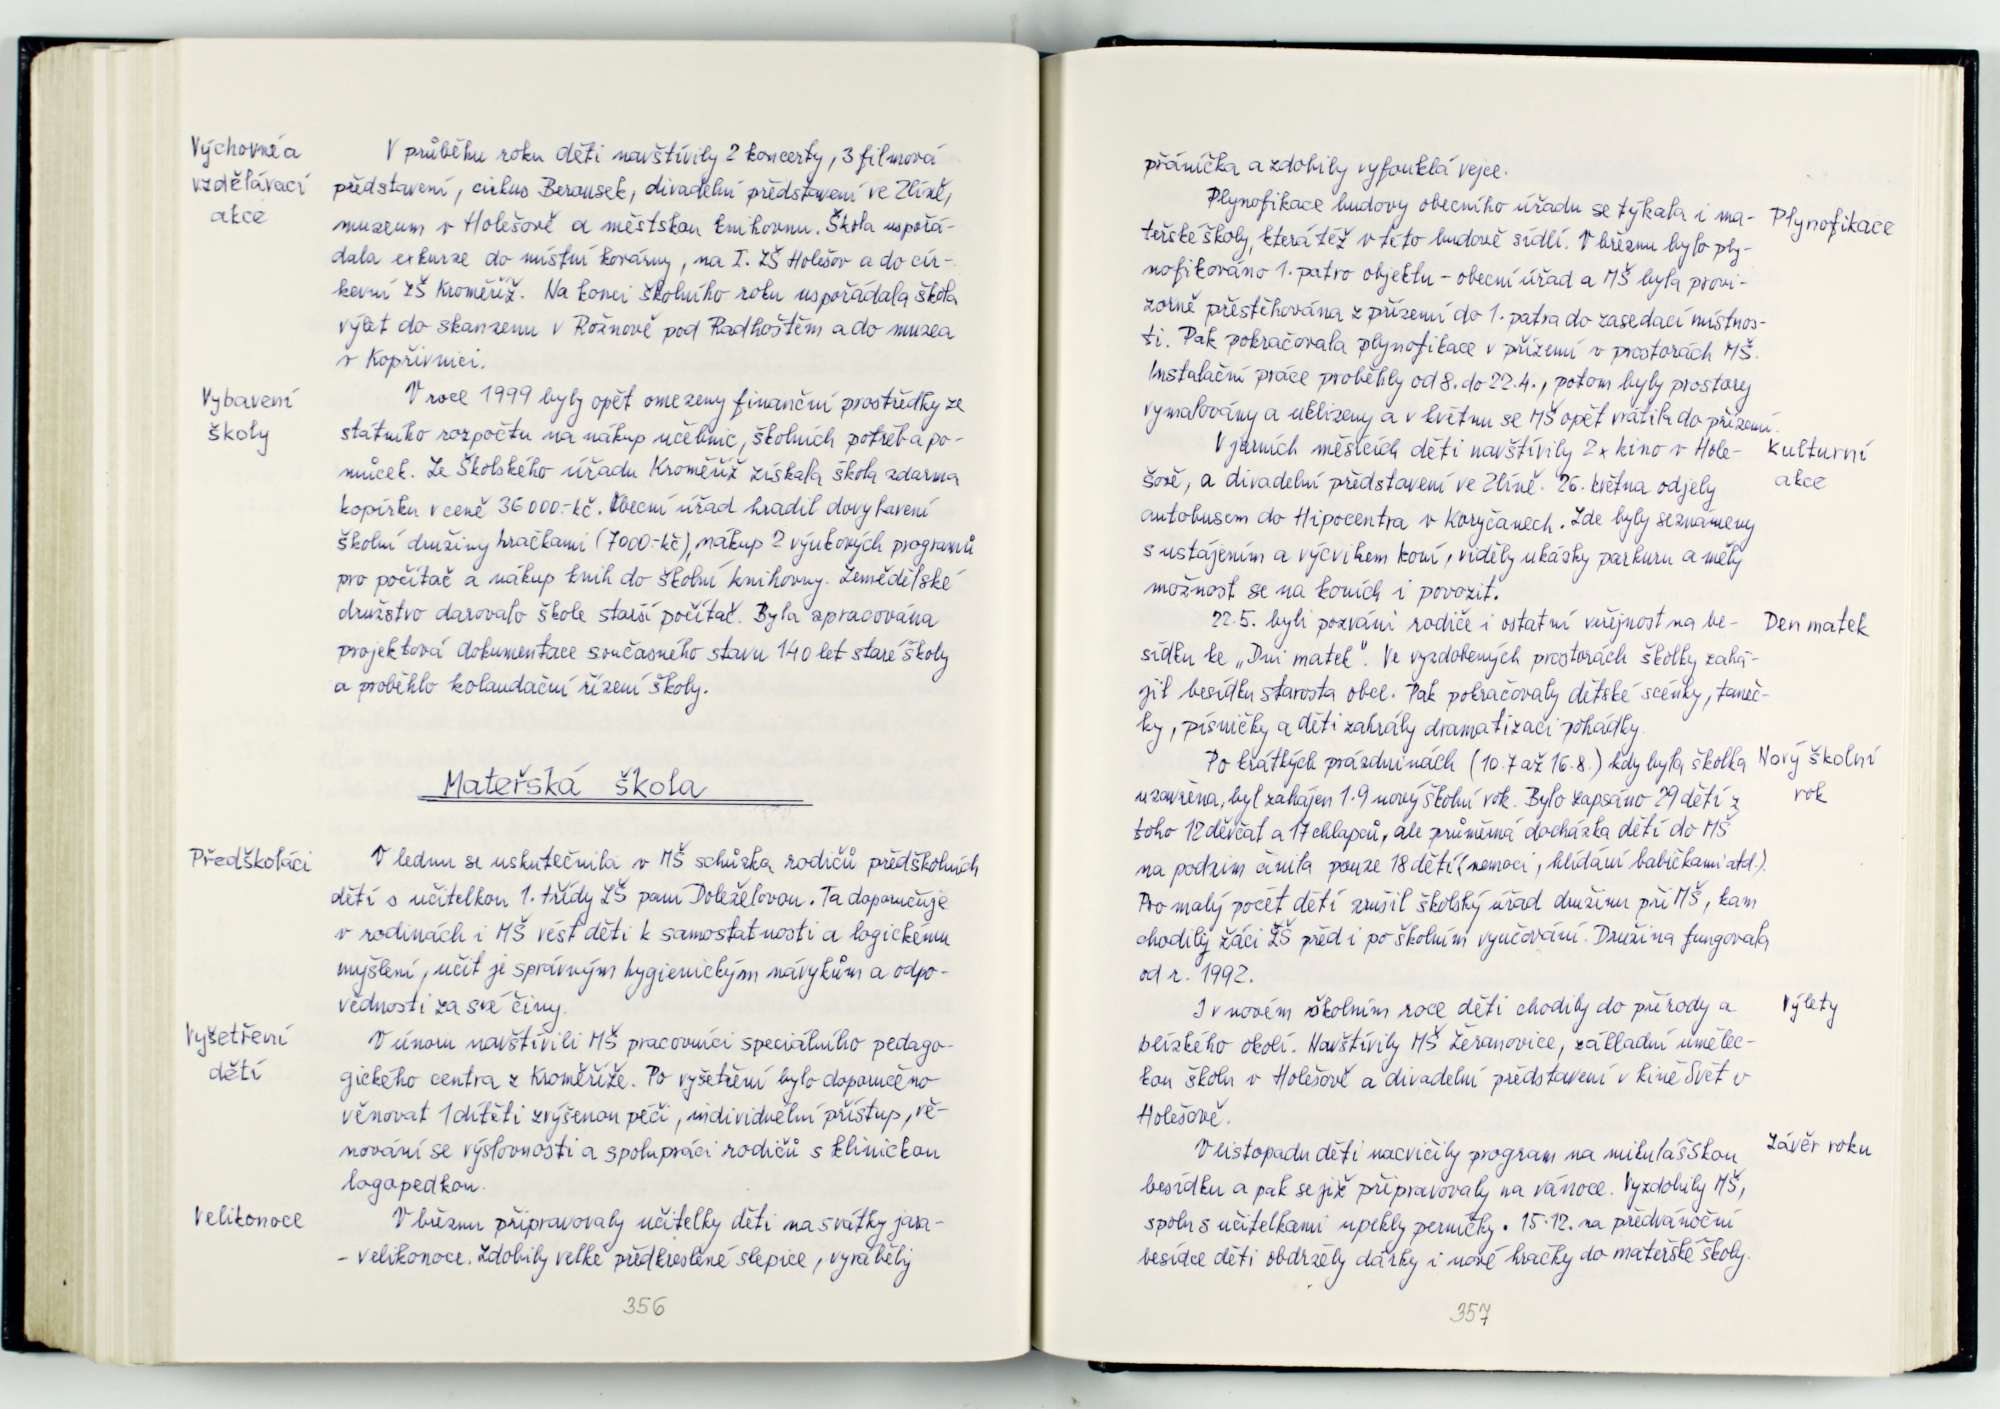 Výchovné a
vzdělávací
akce
V průběhu roku děti navštívily 2 koncerty, 3 filmová
představení, cirkus Berousek, divadelní představení ve Zlíně,
muzeum v Holešově a městskou knihovnu. Škola uspořá-
dala exkurze do místní kovárny, na I. ZŠ Holešov a do cír-
kevní ZŠ Kroměříž. Na konci školního roku uspořádala škola
výlet do skanzenu v Rožnově pod Radhoštěm a do muzea
v Kopřivnici.
Vybavení
školy
V roce 1999 byly opět omezeny finanční prostředky ze
státního rozpočtu na nákup učebnic, školních potřeb a po-
můcek. Ze Školského úřadu Kroměříž získala škola zdarma
kopírku v ceně 36 000.- kč. Obecní úřad hradil dovybavení
školní družiny hračkami (7000.- kč), nákup 2 výukových programů
pro počítač a nákup knih do školní knihovny. Zemědělské
družstvo darovalo škole starší počítač. Byla zpracována
projektová dokumentace současného stavu 140 let staré školy
a proběhlo kolaudační řízení školy.
Mateřská škola
Předškoláci
V lednu se uskutečnila v MŠ schůzka rodičů předškolních
dětí s učitelkou 1. třídy ZŠ paní Doleželovou. Ta doporučuje
v rodinách i MŠ vést děti k samostatnosti a logickému
myšlení, učit je správným hygienickým návykům a odpo-
vědnosti za své činy.
Vyšetření
dětí
V únoru navštívili MŠ pracovníci speciálního pedago-
gického centra z Kroměříže. Po vyšetření bylo doporučeno
věnovat 1 dítěti zvýšenou péči, individuelní přístup, vě-
nování se výslovnosti a spolupráci rodičů s klinickou
logopedkou.
Velikonoce
V březnu připravovaly učitelky děti na svátky jara-
- velikonoce. Zdobily velké předkreslené slepice, vyráběly
356
přáníčka a zdobily vyfouklá vejce.
Plynofikace budovy obecního úřadu se týkala i ma-
teřské školy, která též v této budově sídlí. V březnu bylo ply-
nofikováno 1. patro objektu - obecní úřad a MŠ byla provi-
zorně přestěhována z přízemí do 1. patra do zasedací místnos-
ti. Pak pokračovala plynofikace v přízemí v prostorách MŠ.
Instalační práce proběhly od 8. do 22.4., potom byly prostory
vymalovány a uklizeny a v květnu se MŠ opět vrátila do přízemí.
Plynofikace
V jarních měsících děti navštívily 2x kino v Hole-
šově, a divadelní představení ve Zlíně. 26. května odjely
autobusem do Hipocentra v Koryčanech. Zde byly seznámeny
s ustájením a výcvikem koní, viděly ukázky parkuru a měly
možnost se na koních i povozit.
Kulturní
akce
22.5. byli pozváni rodiče i ostatní veřejnost na be-
sídku ke „Dni matek“. Ve vyzdobených prostorách školky zahá-
jil besídku starosta obce. Pak pokračovaly dětské scénky, taneč-
ky, písničky a děti zahrály dramatizaci pohádky.
Den matek
Po krátkých prázdninách (10.7 až 16.8.) kdy byla školka
uzavřena, byl zahájen 1.9 nový školní rok. Bylo zapsáno 29 dětí z
toho 12 děvčat a 17 chlapců, ale průměrná docházka dětí do MŠ
na podzim činila pouze 18 dětí (nemoci, hlídání babičkami atd.).
Pro malý počet dětí zrušil školský úřad družinu při MŠ, kam
chodily žáci ZŠ před i po školním vyučování. Družina fungovala
od r. 1992.
Nový školní
rok
I v novém školním roce děti chodily do přírody a
blízkého okolí. Navštívily MŠ Žeranovice, základní umělec-
kou školu v Holešově a divadelní představení v kině Svět v
Holešově.
Výlety
V listopadu děti nacvičily program na mikulášskou
besídku a pak se již připravovaly na vánoce. Vyzdobily MŠ,
spolu s učitelkami upekly perníčky. 15.12. na předvánoční
besídce děti obdržely dárky i nové hračky do mateřské školy.
Závěr roku
357